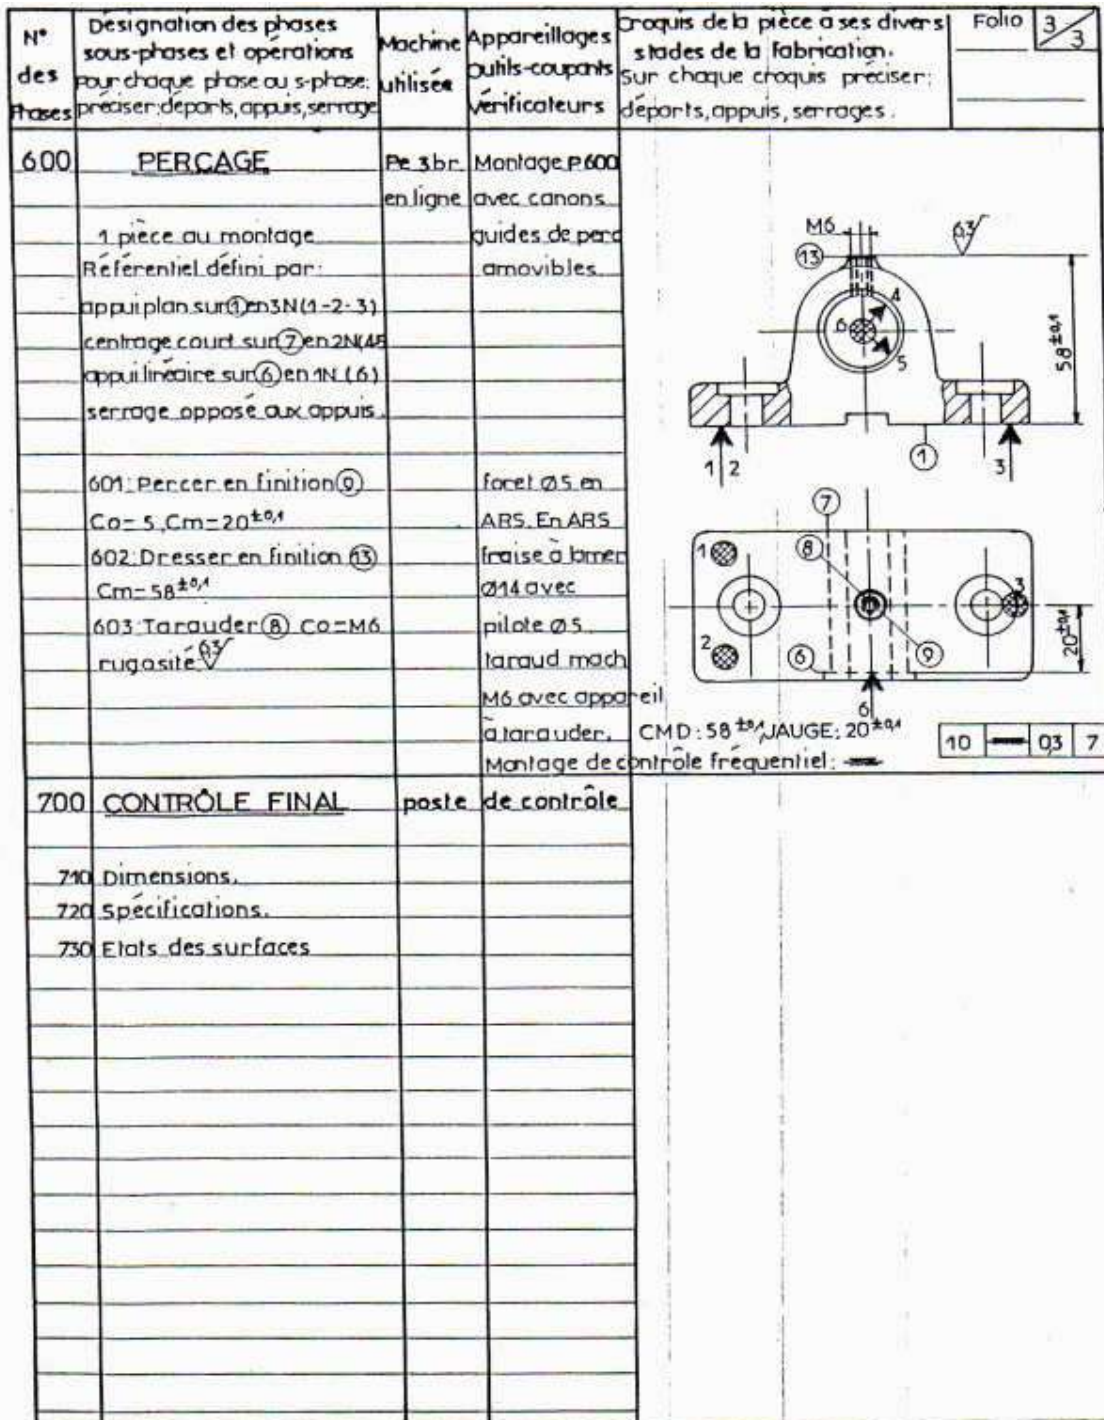 N°
des
Phases
Désignation des phases
sous-phases et opérations
Pour chaque phase ou s-phase:
préciser: départs, appuis, serrage
Machine
utilisée
Appareillages
outils-coupants
vérificateurs
Croquis de la pièce à ses divers
stades de la fabrication.
Sur chaque croquis préciser:
départs, appuis, serrages.
Folio 3/3
600 PERÇAGE Pe 3 br. Montage P.600
en ligne avec canons
1 pièce au montage guides de perc
Référentiel défini par: amovibles
appui plan sur ① en 3N (1-2-3)
centrage court sur ⑦ en 2N (45
appui linéaire sur ⑥ en 1N (6)
serrage opposé aux appuis.
601: Percer en finition ⑨ foret Ø5 en
Co=5, Cm=20±0,1 ARS. En ARS
602: Dresser en finition ⑬ fraise à lamer
Cm=58±0,1 Ø14 avec
603: Tarauder ⑧ Co=M6 pilote Ø5.
rugosité 6,3 taraud mach
M6 avec appareil
à tarauder.
M6
6,3
⑬
4
6
5
58±0,1
1 2
①
3
⑦
1
⑧
3
2
⑥
⑨
20±0,1
6
CMD: 58±0,1 JAUGE: 20±0,1
Montage de contrôle fréquentiel:
10 03 7
700 CONTRÔLE FINAL poste de contrôle
710 Dimensions.
720 Spécifications.
730 Etats des surfaces